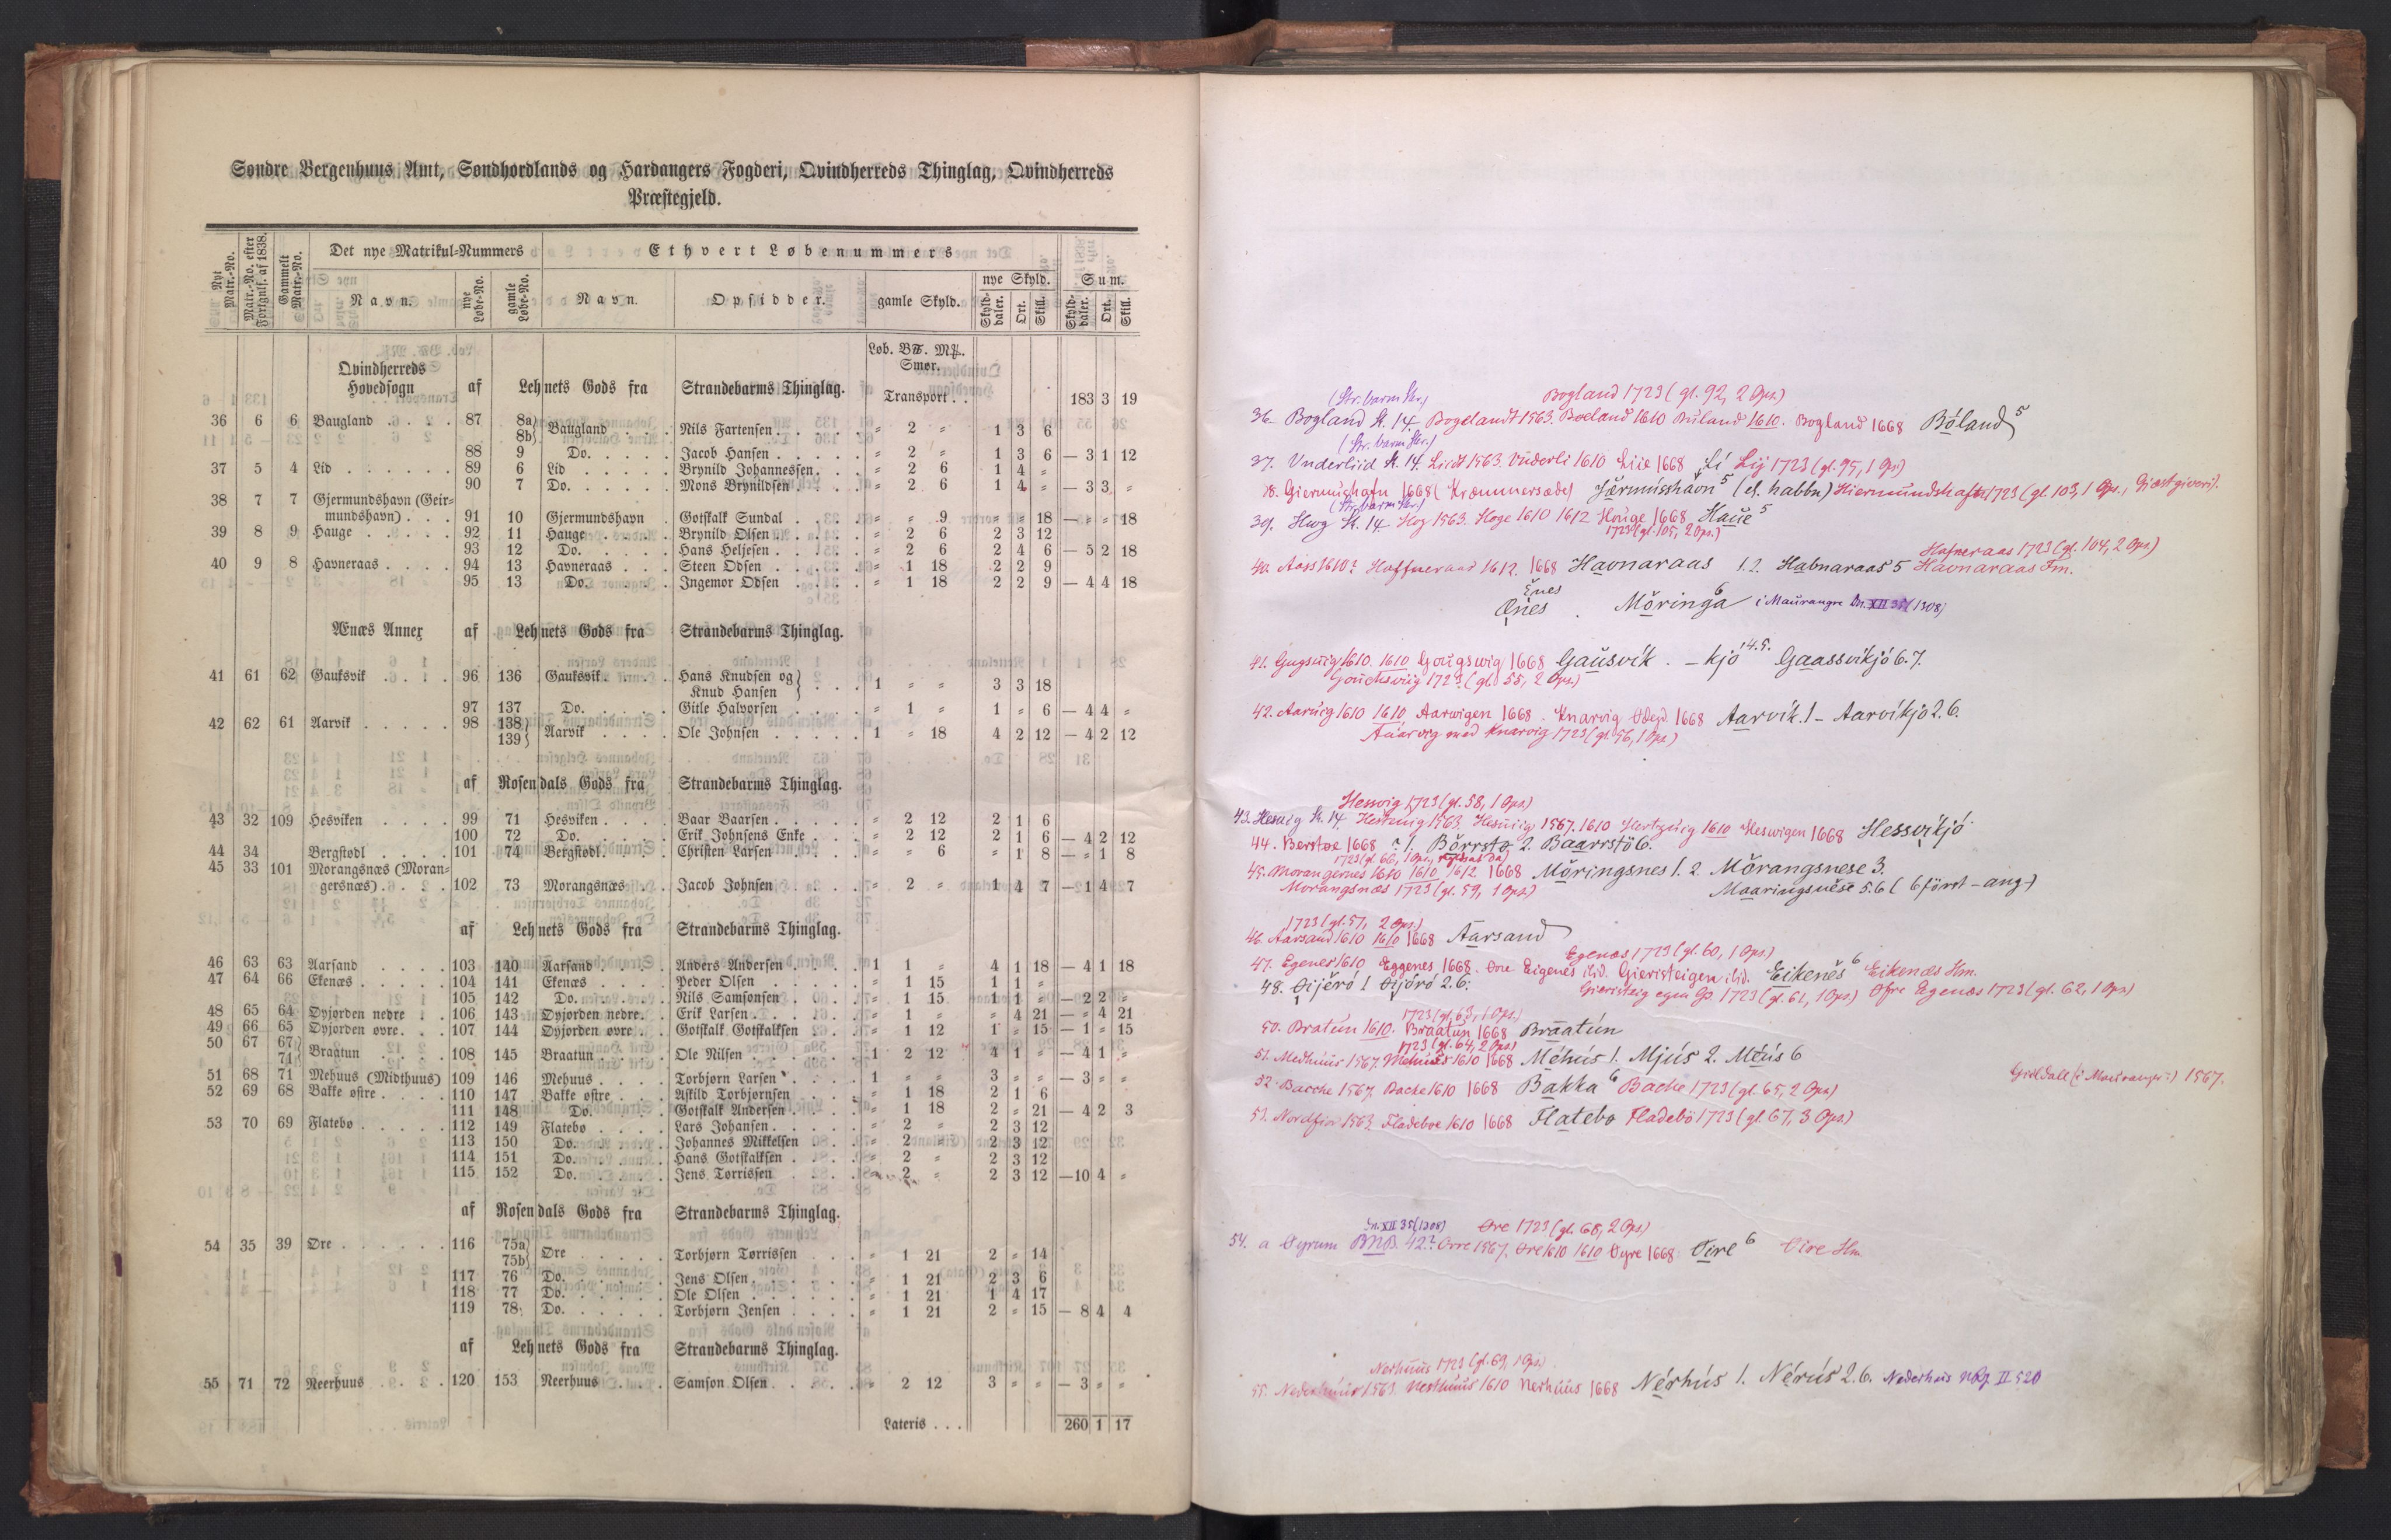 Søndre Bergenhuus Amt, Søndhordlands og Hardangers Fogderi, Qvindherreds Thinglag, Qvindherreds
Præstegjeld.
Nyt Matr.-No. Matr.-No. efter Forgnlf. af 1838. Gammelt Matr.-No. Det nye Matrikul-Nummers Ethvert Løbenummers
Navn. nye Løbe-No. gamle Løbe-No. Navn. Opsidder. gamle Skyld. nye Skyld. Sum.
Skyld-daler. Ort. Skill. Skyld-daler. Ort. Skill.
Løb. B℔. M℔.
Smør.
Qvindherreds
Hovedsogn af Lehnets Gods fra Strandebarms Thinglag.
Transport . . 183 3 19
36 6 6 Baugland . . . . 87 8a} 8b} Baugland . . . Nils Fartensen . . . . . " 2 " 1 3 6
88 9 Do. . . . . Jacob Hansen . . . . . " 2 " 1 3 6 — 3 1 12
37 5 4 Lid . . . . . . 89 6 Lid . . . . . Brynild Johannessen . . . " 2 6 1 4 "
90 7 Do. . . . . . Mons Brynildsen . . . . " 2 6 1 4 " — 3 3 "
38 7 7 Gjermundshavn (Geir-
mundshavn) . . . 91 10 Gjermundshavn . Gotskalk Sundal . . . . " " 9 " " 18 — " " 18
39 8 9 Hauge . . . . . 92 11 Hauge . . . . Brynild Olsen . . . . . " 2 6 2 3 12
93 12 Do. . . . . Hans Heljesen . . . . . " 2 6 2 4 6 — 5 2 18
40 9 8 Havneraas . . . . 94 13 Havneraas . . . Steen Odsen . . . . . " 1 18 2 2 9
95 13 Do. . . . . Ingemor Odsen . . . . " 1 18 2 2 9 — 4 4 18
Ænæs Annex af Lehnets Gods fra Strandebarms Thinglag.
41 61 62 Gauksvik . . . . 96 136 Gauksvik . . . . Hans Knudsen og}
Knud Hansen } . . . 1 " " 3 3 18
97 137 Do. . . . . Gitle Halvorsen . . . . " 1 " 1 " 6 — 4 4 "
42 62 61 Aarvik . . . . . 98 138} 139} Aarvik . . . . Ole Johnsen . . . . . 1 " 18 4 2 12 — 4 2 12
af Rosendals Gods fra Strandebarms Thinglag.
43 32 109 Hesviken . . . . 99 71 Hesviken . . . . Baar Baarsen . . . . . " 2 12 2 1 6
100 72 Do. . . . . Erik Johnsens Enke . . . " 2 12 2 1 6 — 4 2 12
44 34 Bergstødl . . . . 101 74 Bergstødl . . . . Christen Larsen . . . . " " 6 " 1 8 — " 1 8
45 33 101 Morangsnæs (Moran-
gersnæs) . . . . 102 73 Morangsnæs . . Jacob Johnsen . . . . . " 2 " 1 4 7 — 1 4 7
af Lehnets Gods fra Strandebarms Thinglag.
46 63 63 Aarsand . . . . 103 140 Aarsand . . . . Anders Andersen . . . . 1 1 " 4 1 18 — 4 1 18
47 64 66 Ekenæs . . . . . 104 141 Ekenæs . . . . Peder Olsen . . . . . " 1 15 1 1 "
105 142 Do. . . . . Nils Samsonsen . . . . " 1 15 1 1 " — 2 2 "
48 65 64 Øyjorden nedre . . 106 143 Øyjorden nedre. . Erik Larsen . . . . . . " 1 " " 4 21 — " 4 21
49 66 65 Øyjorden øvre. . . 107 144 Øyjorden øvre . . Gotskalk Gotskalksen . . . " 1 12 1 " 15 — 1 " 15
50 67 67} 74} Braatun . . . . 108 145 Braatun . . . . Ole Nilsen . . . . . . 1 2 12 4 1 " — 4 1 "
51 68 71 Mehuus (Midthuus) 109 146 Mehuus . . . . Torbjørn Larsen . . . . 1 " " 3 " " — 3 " "
52 69 68 Bakke østre . . . . 110 147 Bakke østre . . . Askild Torbjørnsen . . . " 1 18 2 1 6
111 148 Do. . . . . Gotskalk Andersen . . . . " 1 18 2 " 21 — 4 2 3
53 70 69 Flatebø . . . . . 112 149 Flatebø . . . . Lars Johansen . . . . . " 2 " 2 3 12
113 150 Do. . . . . Johannes Mikkelsen . . . " 2 " 2 3 12
114 151 Do. . . . . Hans Gotskalksen . . . . " 2 " 2 3 12
115 152 Do. . . . . Jens Tørrissen . . . . " 2 " 2 3 12 — 10 4 "
af Rosendals Gods fra Strandebarms Thinglag.
54 35 39 Øre . . . . . . 116 75a} 75b} Øre . . . . . Torbjørn Tørrissen . . . " 1 21 2 " 14
117 76 Do. . . . . . Jens Olsen . . . . . . " 1 21 2 3 6
118 77 Do. . . . . . Ole Olsen . . . . . . " 1 21 1 4 17
119 78 Do. . . . . . Torbjørn Jensen . . . . " 1 21 2 " 15 — 8 4 4
af Lehnets Gods fra Strandebarms Thinglag.
55 71 72 Neerhuus . . . . 120 153 Neerhuus . . . Samson Olsen . . . . . " 2 12 3 " " — 3 " "
Lateris . . . 260 1 17
(Str.barm Skr.) Bogland 1723 (gl. 92, 2 Ops.)
36. Bogland St. 14. Bogelandt 1563. Boeland 1610 Buland 1610. Bogland 1668 Bóland 5
(Str.barm Skr.)
37. Underliid St. 14. Liidt 1563. Underli 1610 Liie 1668 Lí Lij 1723 (gl. 95, 1 Ops.)
38. Giermushafn 1668 (Kræmmersæde) Jærmússhavn 5 (el. habbn) Hiermundshafn 1723 (gl. 103, 1 Ops., Giæstgiveri).
(Str.barm Skr.)
39. Hwg St. 14 Hog 1563. Hoge 1610 1612 Houge 1668 Haúe 5
1723 (gl. 105, 2 Ops.)
Hafneraas 1723 (gl. 104, 2 Ops.)
40. Aass 1610? Haffneraas 1612. 1668 Havnaraas 1.2. Habnaraas 5 Havnaraas Fm.
Énes
Ænes . Möringa 6 i Maurangre Dn. XII 35 (1308)
41. Gugsuig 1610. 1610 Gougswig 1668 Gaúsvík . – kjö 1.4.5. Gaassvikjö 6.7.
Gouchsviig 1723 (gl. 55, 2 Ops.)
42. Aaruig 1610 1610 Aarwigen 1668. Knarvig Ødegd. 1668 Aarvík 1 – Aarvíkjö 2.6.
Aaarvig med Knarvig 1723 (gl. 56, 1 Ops.)
Hessvig 1723 (gl. 58, 1 Ops.)
43. Hesuig St. 14. Hestuig 1563. Hesuiig 1567. 1610 Hertzuig 1610 Heswigen 1668 Hessvíkjö
44. Berstøe 1668 ? 1. Börrstø 2. Báarrstö 6.
1723 (gl. 60, 1 Ops.,
45. Morangernes 1610 1610 1612 1668 Möringsnes 1. 2 Mörangsnese 3.
Morangsnæs 1723 (gl. 59, 1 Ops.) Maaringsnese 5.6 (6 først – ang-)
1723 (gl. 57, 2 Ops.)
46. Aarsand 1610 1610 1668 Aarsand
Egenæs 1723 (gl. 60, 1 Ops.)
47. Egenes 1610 Eggenes 1668. Øvre Eigenes ibid. Gieristeigen ibid. Eikenes 6 Eikenæs Hm.
48. Øijérö 1 Øijörö 2.6. Gieristeig egen Gd. 1723 (gl. 61, 1 Ops.) Øfre Egenæs 1723 (gl. 62, 1 Ops.)
1723 (gl. 63, 1 Ops.)
50. Bratun 1610. Braatun 1668 Braatún
1723 (gl. 64, 2 Ops.)
51. Medhuus 1567. Mehuus 1610 1668 Méhús 1. Mjús 2. Méús 6
52. Bacche 1567. Backe 1610 1668 Bakka 6 Backe 1723 (gl. 65, 2 Ops.)
Gield Dall (i Mauranger?) 1567.
53. Nordfior 1563. Fladeboe 1610 1668 Flatebø Fladebø 1723 (gl. 67, 3 Ops.)
Dn. XII 35 (1308) Øre 1723 (gl. 68, 2 Ops.)
54. a Øyrum BMB. 42? Ørre 1567. Øre 1610 1610 Øyre 1668. Øire 6 Øire Hm.
Nerhuus 1723 (gl. 69, 1 Ops.)
55. Nederhuus 1563. Nerhuus 1610 Nerhuus 1668 Nérhús 1. Nérús 2.6. Nederhus NRJ. II 520